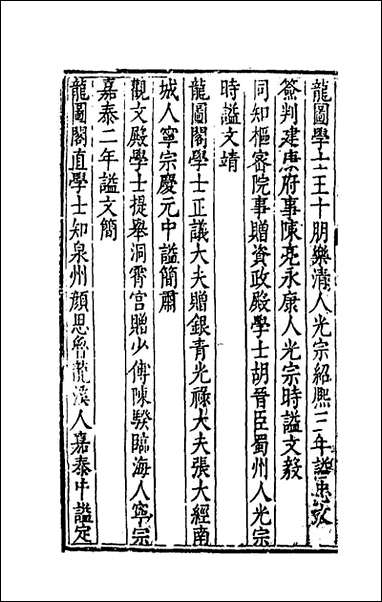 龍圖學士王十朋樂清人光宗紹熙三年謚忠文
簽判建康府事陳亮永康人光宗時謚文毅
同知樞密院事贈資政殿學士胡晉臣蜀州人光宗
時謚文靖
龍圖閣學士正議大夫贈銀青光祿大夫張大經南
城人寧宗慶元中謚簡肅
觀文殿學士提舉洞霄宮贈少傅陳騤臨海人寧宗
嘉泰二年謚文簡
龍圖閣直學士知泉州顏思魯龍溪人嘉泰中謚定